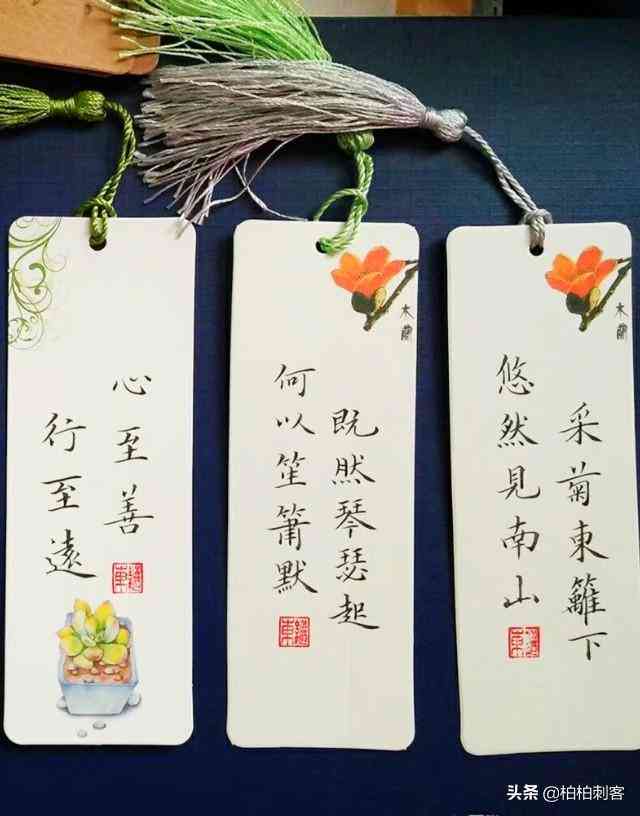 心至善
行至遠
既然琴瑟起
何以笙簫默
采菊東籬下
悠然見南山
头条 @柏柏刺客